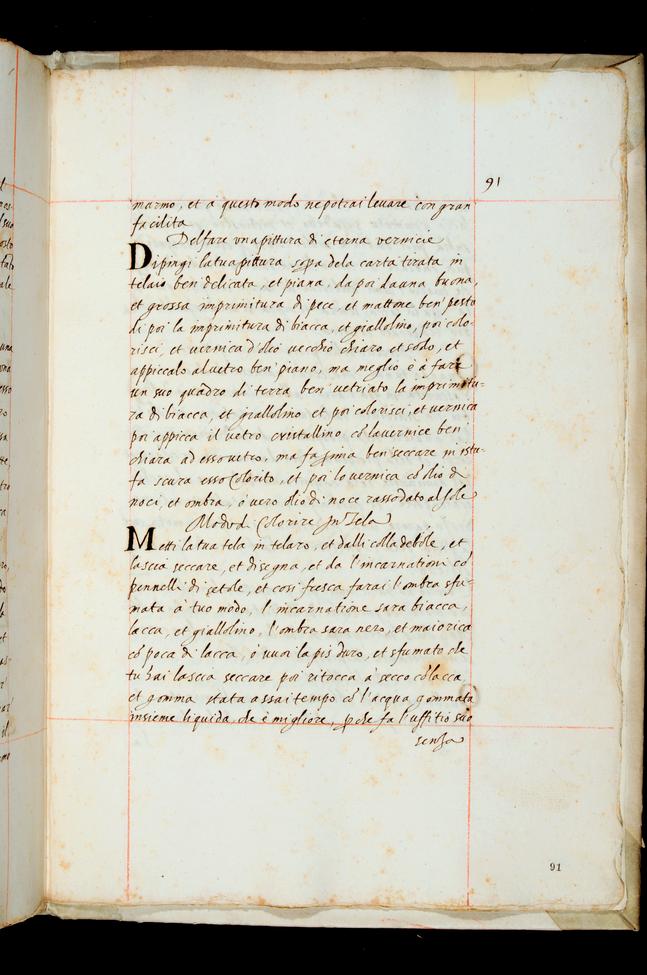 91
marmo, et a questo modo ne potrai levare con gran
facilita
Del fare una pittura di eterna vernicie
Dipingi la tua pittura sopra dela carta tirata in
telaio ben delicata, et piana, da poi da una buona,
et grossa imprimitura di pece, et mattone ben pesto
di poi la imprimitura di biacca, et giallolino, poi colo-
risci, et vernica d'olio vecchio chiaro et sodo, et
appiccalo al vetro ben piano, ma meglio è à fare
un suo quadro di terra ben vetriato la imprimitu-
ra di biacca, et giallolino et poi colorisci, et vernica
poi appicca il vetro cristallino cò la vernice ben
chiara ad esso vetro, ma fa prima ben seccare in istu-
fa scura esso Colorito, et poi lo vernica cò olio di
noci, et ombra, ò vero olio di noce rassodato al sole
Modo di Colorire In Tela
Metti la tua tela in telaro, et dalli colla debole, et
lascia seccare, et disegna, et da l'incarnationi cò
pennelli di setole, et cosi fresca farai l'ombra sfu-
mata à tuo modo, l'incarnatione sara biacca,
lacca, et giallolino, l'ombra sara nero, et maiorica
cò poca di lacca, ò vuoi lapis duro, et sfumato che
tu hai lascia seccare poi ritocca à secco cò lacca
et gomma stata assai tempo cò l'acqua gommata
insieme liquida, che è migliore, perche fa l'uffitio suo
senza
91